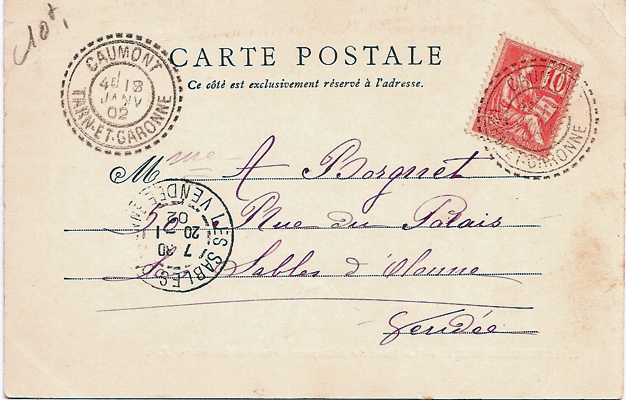 c10f,
CAUMONT
4E 18
JANV
02
TARN-ET-GARONNE
CARTE POSTALE
Ce côté est exclusivement réservé à l'adresse.
10
TARN-ET-GARONNE
Mme A Borgnet
Rue du Palais
Sables d'Olonne
Vendée
LES SABLES
VENDEE
7 30
20 1
02